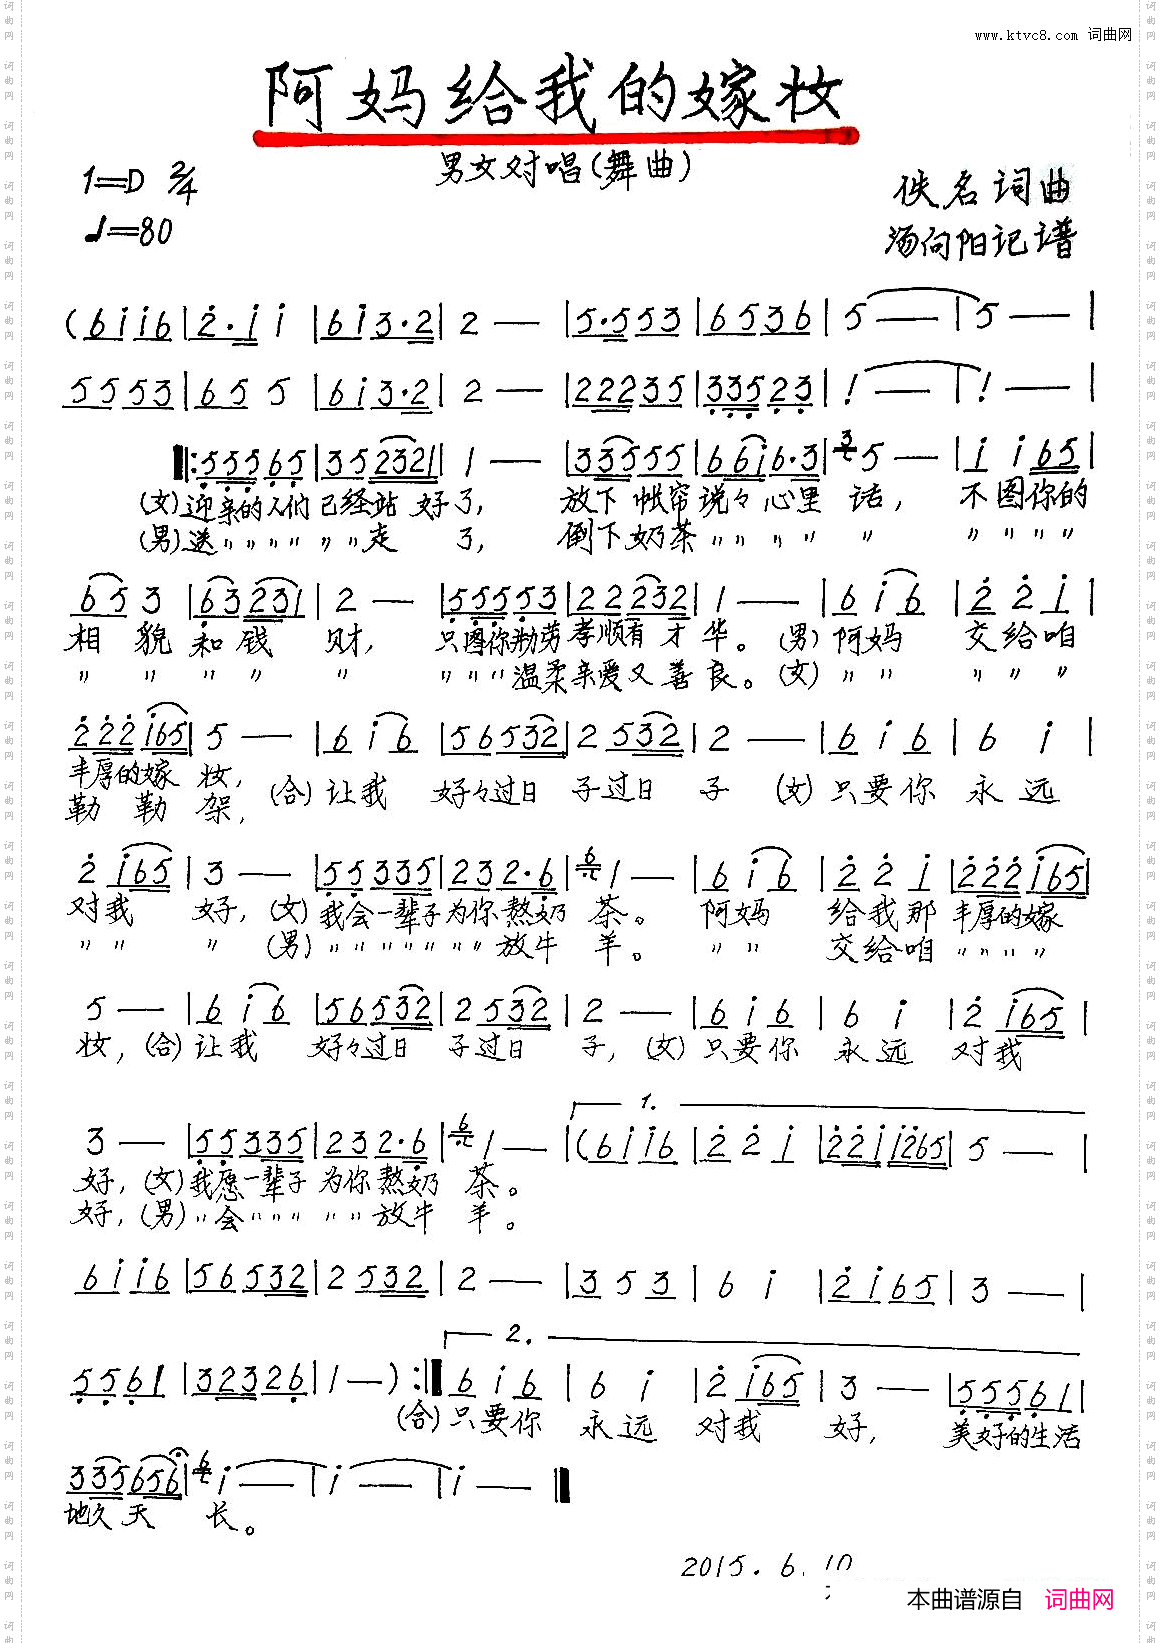 www.ktvc8.com 词曲网
阿妈给我的嫁妆
男女对唱(舞曲)
1=D 2/4
♩=80
佚名词曲
汤向阳记谱
(6i i6|2·i i|6i3·2|2 —|5·553|6536|5 —|5 —|
5553|65 5|6i3·2|2 —|22235|33523|i —|i —|
‖:55565|352321|1 —|33555|66i6·3|5 —|i i65|
(女)迎亲的人们已经站好了, 放下帐帘说々心里话, 不图你的
(男)送〃〃〃〃〃〃走 了, 倒下奶茶〃〃〃〃 〃 〃〃〃〃
65 3|63231|2 —|55553|22232|1 —|6i6|2 2 i|
相貌和钱 财, 只图你勤劳孝顺有才华。(男)阿妈 交给咱
〃 〃 〃 〃 〃 〃〃〃温柔亲爱又善良。(女)〃 〃 〃 〃 〃
222i65|5 —|6i6|56532|2532|2 —|6i6|6 i|
丰厚的嫁 妆, (合)让我 好々过日 子过日 子 (女)只要你 永远
勒勒架,
2i65|3 —|55335|232·6|1 —|6i6|2 2 i|222i65|
对我 好, (女)我会一辈子为你熬奶 茶。 阿妈 给我那 丰厚的嫁
〃 〃 〃 (男)〃〃〃〃〃〃〃放牛 羊。 〃 〃 交给咱 〃〃〃〃
5 —|6i6|56532|2532|2 —|6i6|6 i|2i65|
妆, (合)让我 好々过日 子过日 子, (女)只要你 永远 对我
1.
3 —|55335|232·6|1 —|(6i i6|2 2 i|22i i265|5 —|
好, (女)我愿一辈子 为你熬奶 茶。
好, (男)〃会〃〃〃 〃〃放牛 羊。
6i i6|56532|2532|2 —|353|6 i|2i65|3 —|
2.
5561|32326|1—):‖6i6|6 i|2i65|3 —|55561|
(合)只要你 永远 对我 好, 美好的生活
335656|i —|i —|i —‖
地久天 长。
2015.6.10
本曲谱源自 词曲网